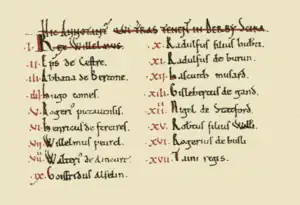 Hic Annotantur tenentes terras in Derbyscira
.I. Rex Willelmus.
.II. Eps de Cestre.
.III. Abbatia de Bertone.
.IIII. Hugo comes.
.V. Rogerus pictauensis.
.VI. Henricus de ferrares.
.VII. Willelmus peurel.
.VIII. Walterus de Aincurt.
.IX. Goisfridus Alselin.
.X. Radulfus filius huberti.
.XI. Radulfus de burun.
.XII. Hascuid musard.
.XIII. Gislebertus de gand.
.XIIII. Nigel de Statford.
.XV. Robtus filius Willi.
.XVI. Rogerius de busli.
.XVII. Taini regis.